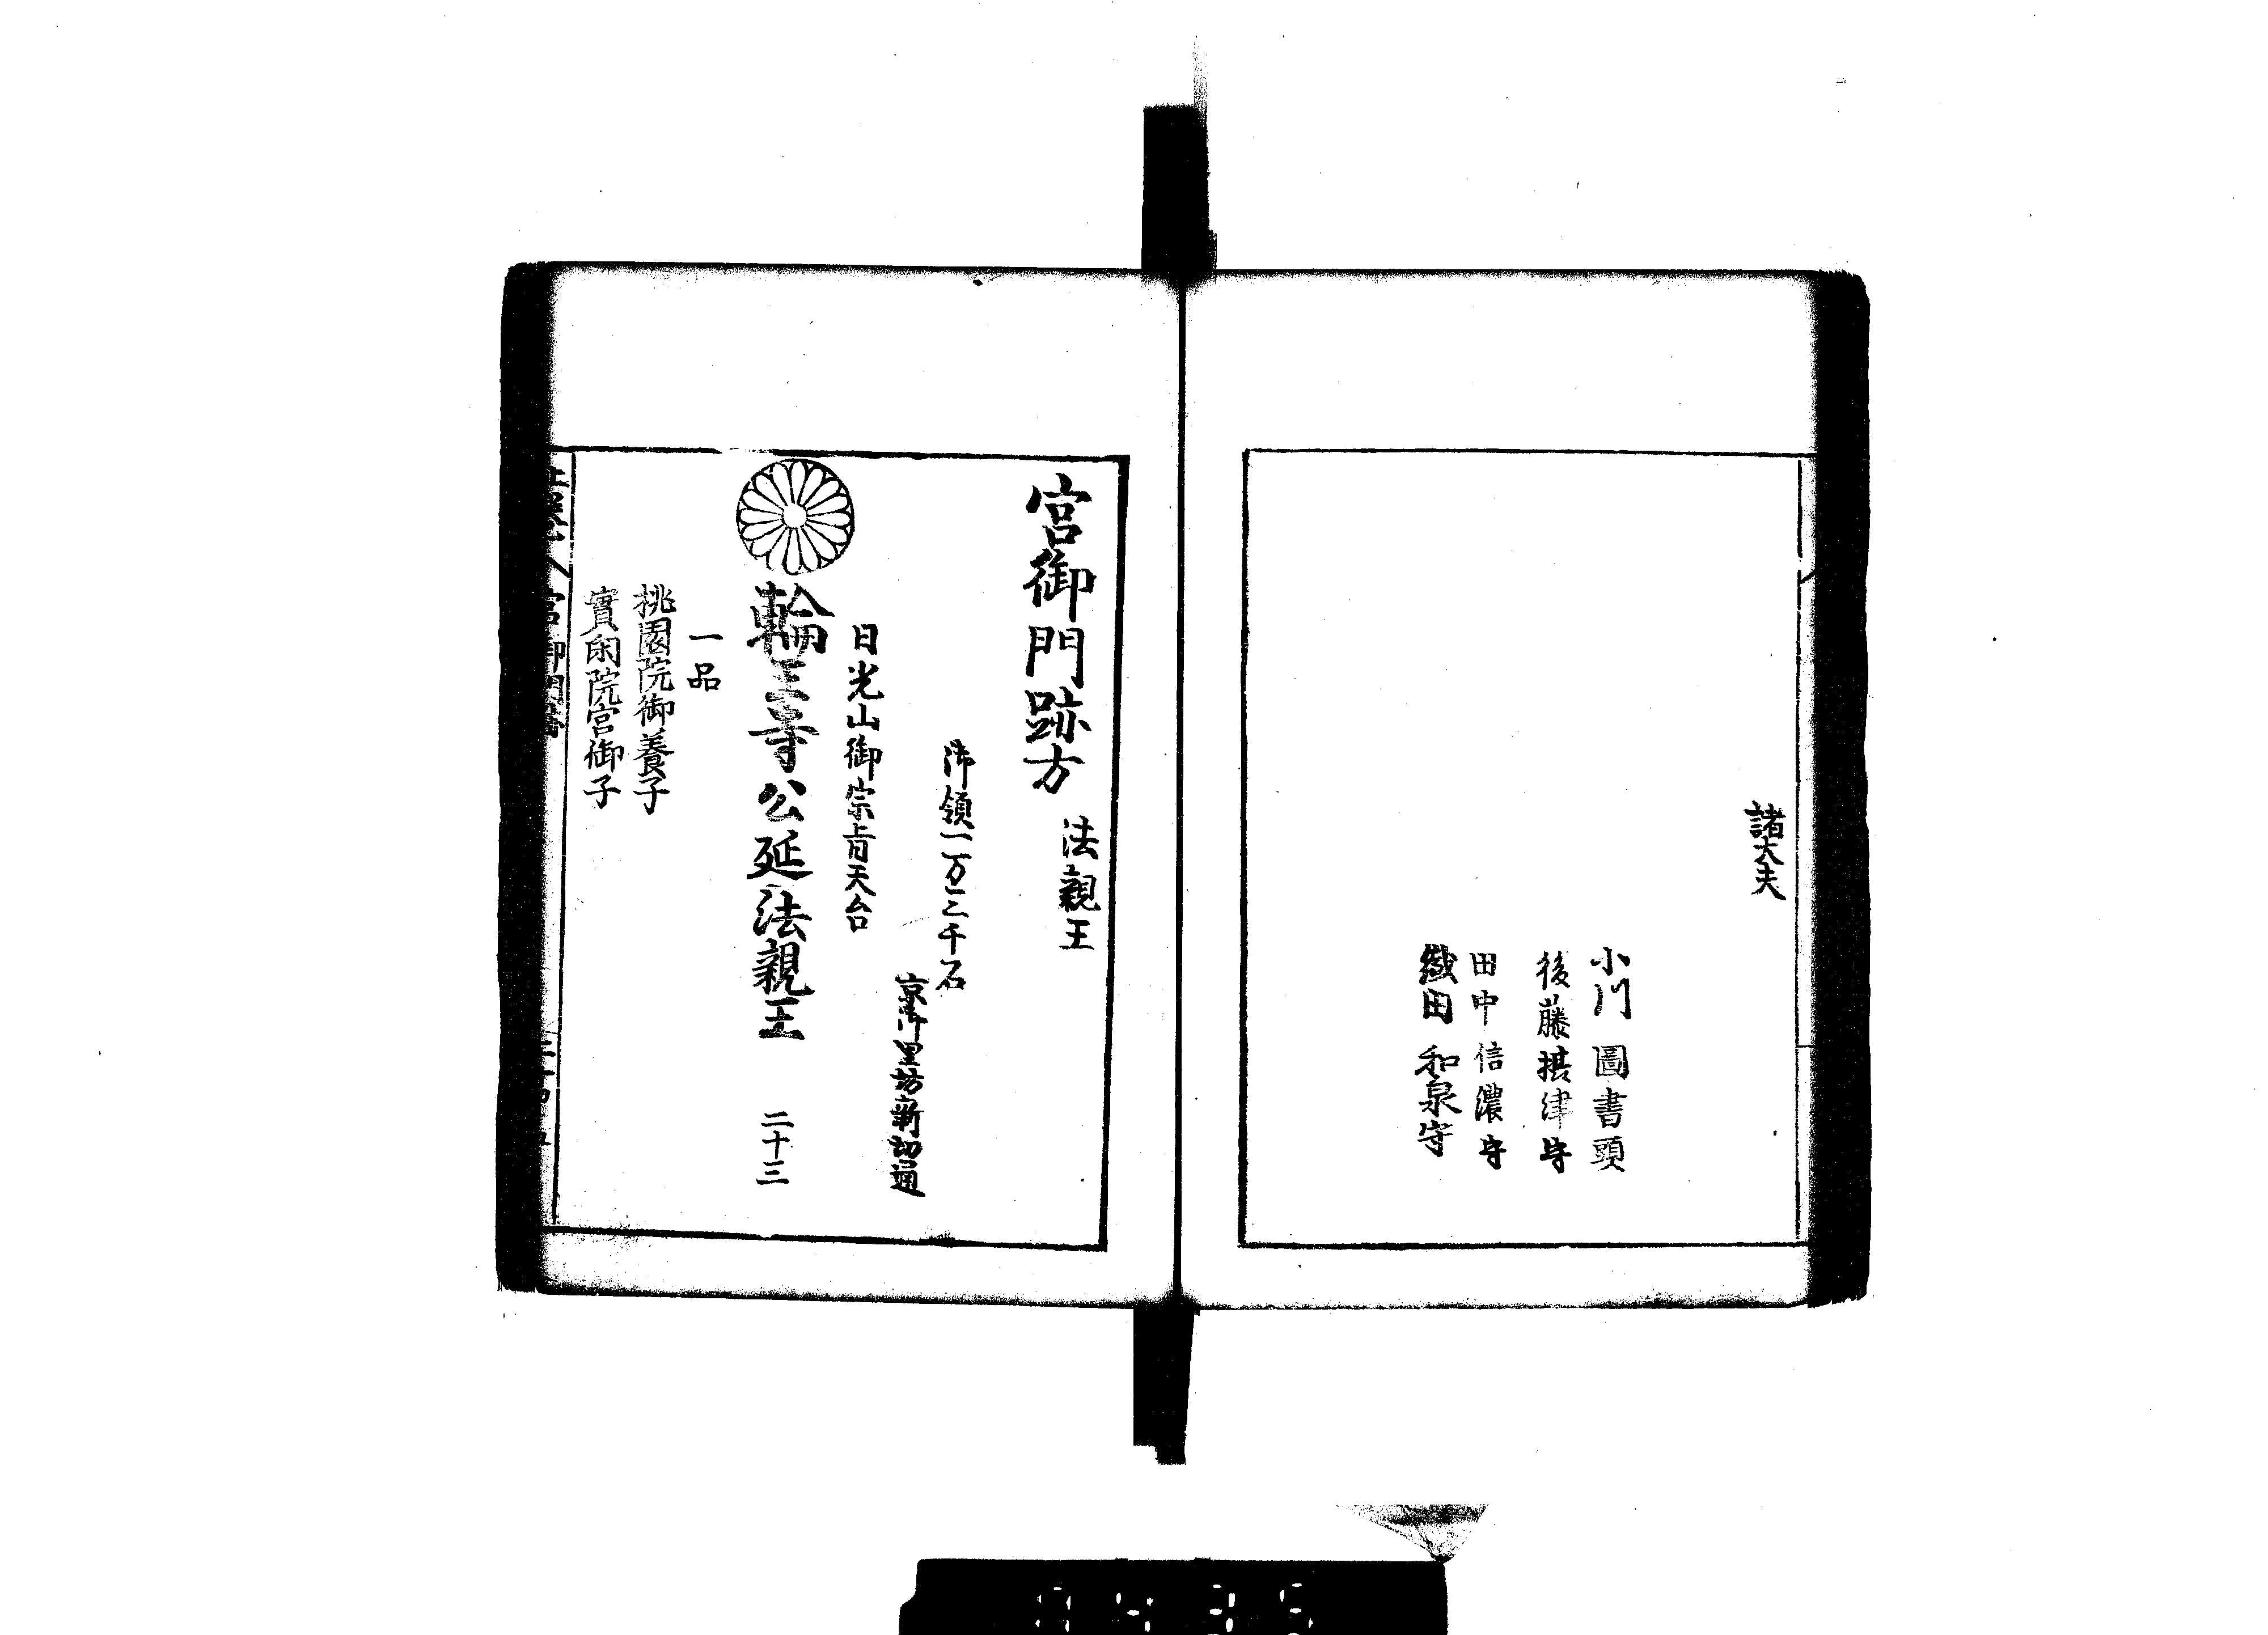 諸大夫
小川 圖書頭
後藤摂津守
田中信濃守
織田 和泉守
宮御門跡方 法親王
御領一万三千石
京御里坊新切通
日光山御宗旨天台
輪王寺公延法親王 二十三
一品
桃園院御養子
實閑院宮御子
宮御門跡